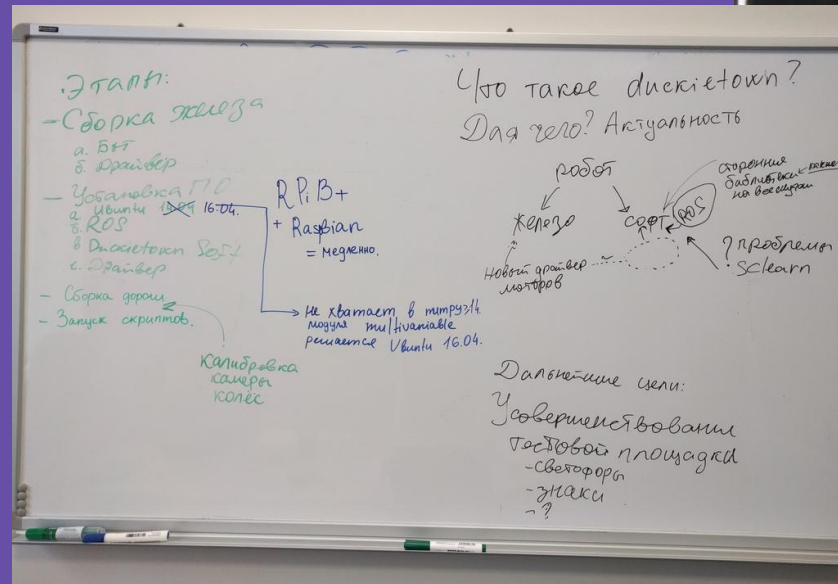 Этапы:
- Сборка железа
а. Бот
б. Драйвер
- Установка ПО
а. Ubuntu 14.04 16.04.
б. ROS
в Duckietown Soft
г. Драйвер
- Сборка дороги
- Запуск скриптов.
Калибровка
камеры
колёс
RPiB+
+ Raspbian
= медленно.
Не хватает в numpy≥14.
модуля multivariable
решается Ubuntu 16.04.
Что такое duckietown?
Для чего? Актуальность
робот
железо
софт
ROS
сторонние
библиотеки
Новый драйвер
моторов
? проблемы
sclearn
Дальнейшие цели:
Усовершенствования
тестовой площадки
- светофоры
- знаки
- ?